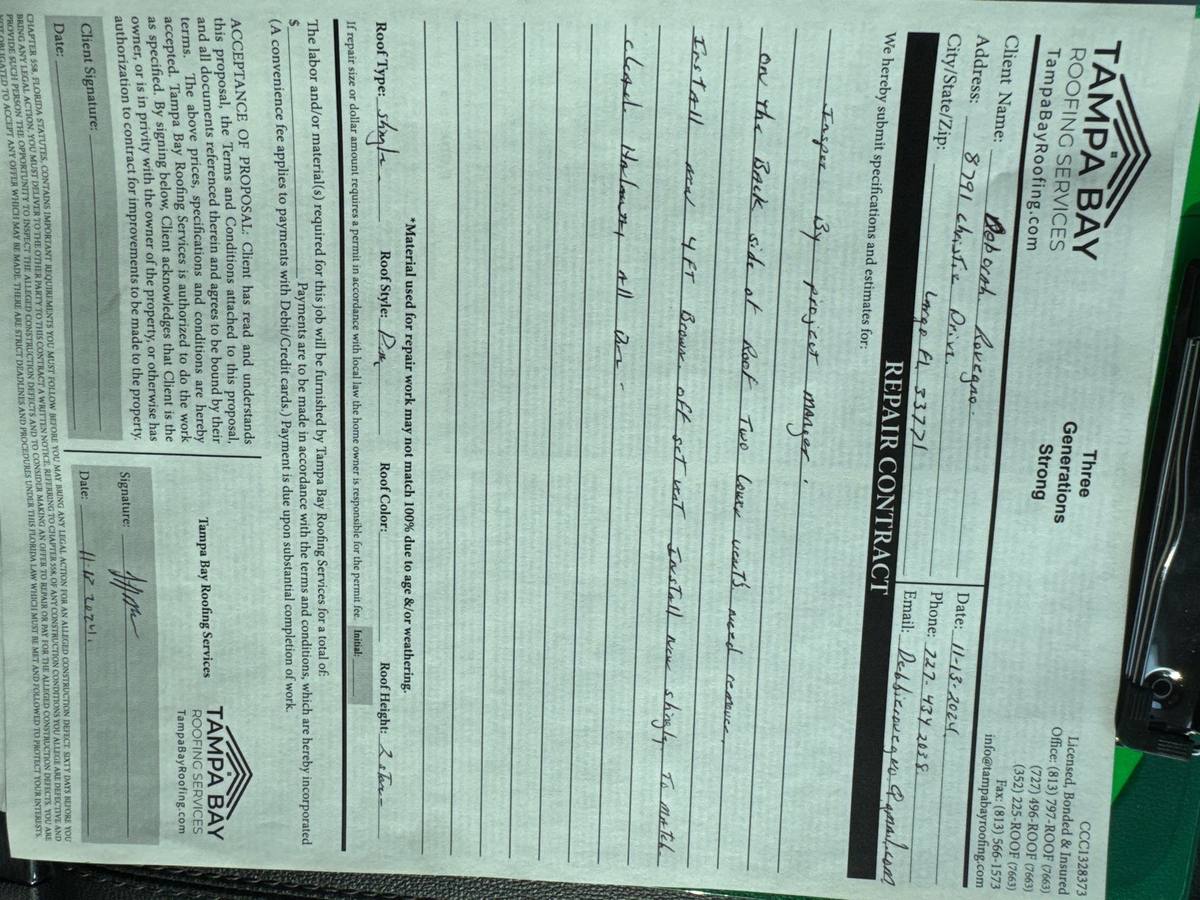 TAMPA BAY
ROOFING SERVICES
TampaBayRoofing.com
Three
Generations
Strong
CCC1328373
Licensed, Bonded & Insured
Office: (813) 797-ROOF (7663)
(727) 496-ROOF (7663)
(352) 225-ROOF (7663)
Fax: (813) 566-1573
info@tampabayroofing.com
Client Name: Deborah Rovegno.
Address: 8791 Christie Drive.
City/State/Zip: Largo FL 33771
Date: 11-13-2024.
Phone: 727. 434 2038
Email: Debbierovegno@gmail.com
REPAIR CONTRACT
We hereby submit specifications and estimates for:
By project manger.
on the Back side of Roof Two lower vents need remove.
Install new 4FT Brown off set vent Install new shingle To match
closed Harmony all
*Material used for repair work may not match 100% due to age &/or weathering.
Roof Type: shingle Roof Style: Roof Color: Roof Height: 2
If repair size or dollar amount requires a permit in accordance with local law the home owner is responsible for the permit fee. Initial:
The labor and/or material(s) required for this job will be furnished by Tampa Bay Roofing Services for a total of:
$ Payments are to be made in accordance with the terms and conditions, which are hereby incorporated
(A convenience fee applies to payments with Debit/Credit cards.) Payment is due upon substantial completion of work.
ACCEPTANCE OF PROPOSAL: Client has read and understands
this proposal, the Terms and Conditions attached to this proposal,
and all documents referenced therein and agrees to be bound by their
terms. The above prices, specifications and conditions are hereby
accepted. Tampa Bay Roofing Services is authorized to do the work
as specified. By signing below, Client acknowledges that Client is the
owner, or is in privity with the owner of the property, or otherwise has
authorization to contract for improvements to be made to the property.
Client Signature:
Date:
Tampa Bay Roofing Services
TAMPA BAY
ROOFING SERVICES
TampaBayRoofing.com
Signature:
Date: 11-18 2024.
CHAPTER 558, FLORIDA STATUTES, CONTAINS IMPORTANT REQUIREMENTS YOU MUST FOLLOW BEFORE YOU MAY BRING ANY LEGAL ACTION FOR AN ALLEGED CONSTRUCTION DEFECT. SIXTY DAYS BEFORE YOU
BRING ANY LEGAL ACTION, YOU MUST DELIVER TO THE OTHER PARTY TO THIS CONTRACT A WRITTEN NOTICE, REFERRING TO CHAPTER 558, OF ANY CONSTRUCTION CONDITIONS YOU ALLEGE ARE DEFECTIVE AND
PROVIDE SUCH PERSON THE OPPORTUNITY TO INSPECT THE ALLEGED CONSTRUCTION DEFECTS AND TO CONSIDER MAKING AN OFFER TO REPAIR OR PAY FOR THE ALLEGED CONSTRUCTION DEFECTS. YOU ARE
NOT OBLIGATED TO ACCEPT ANY OFFER WHICH MAY BE MADE. THERE ARE STRICT DEADLINES AND PROCEDURES UNDER THIS FLORIDA LAW WHICH MUST BE MET AND FOLLOWED TO PROTECT YOUR INTERESTS.